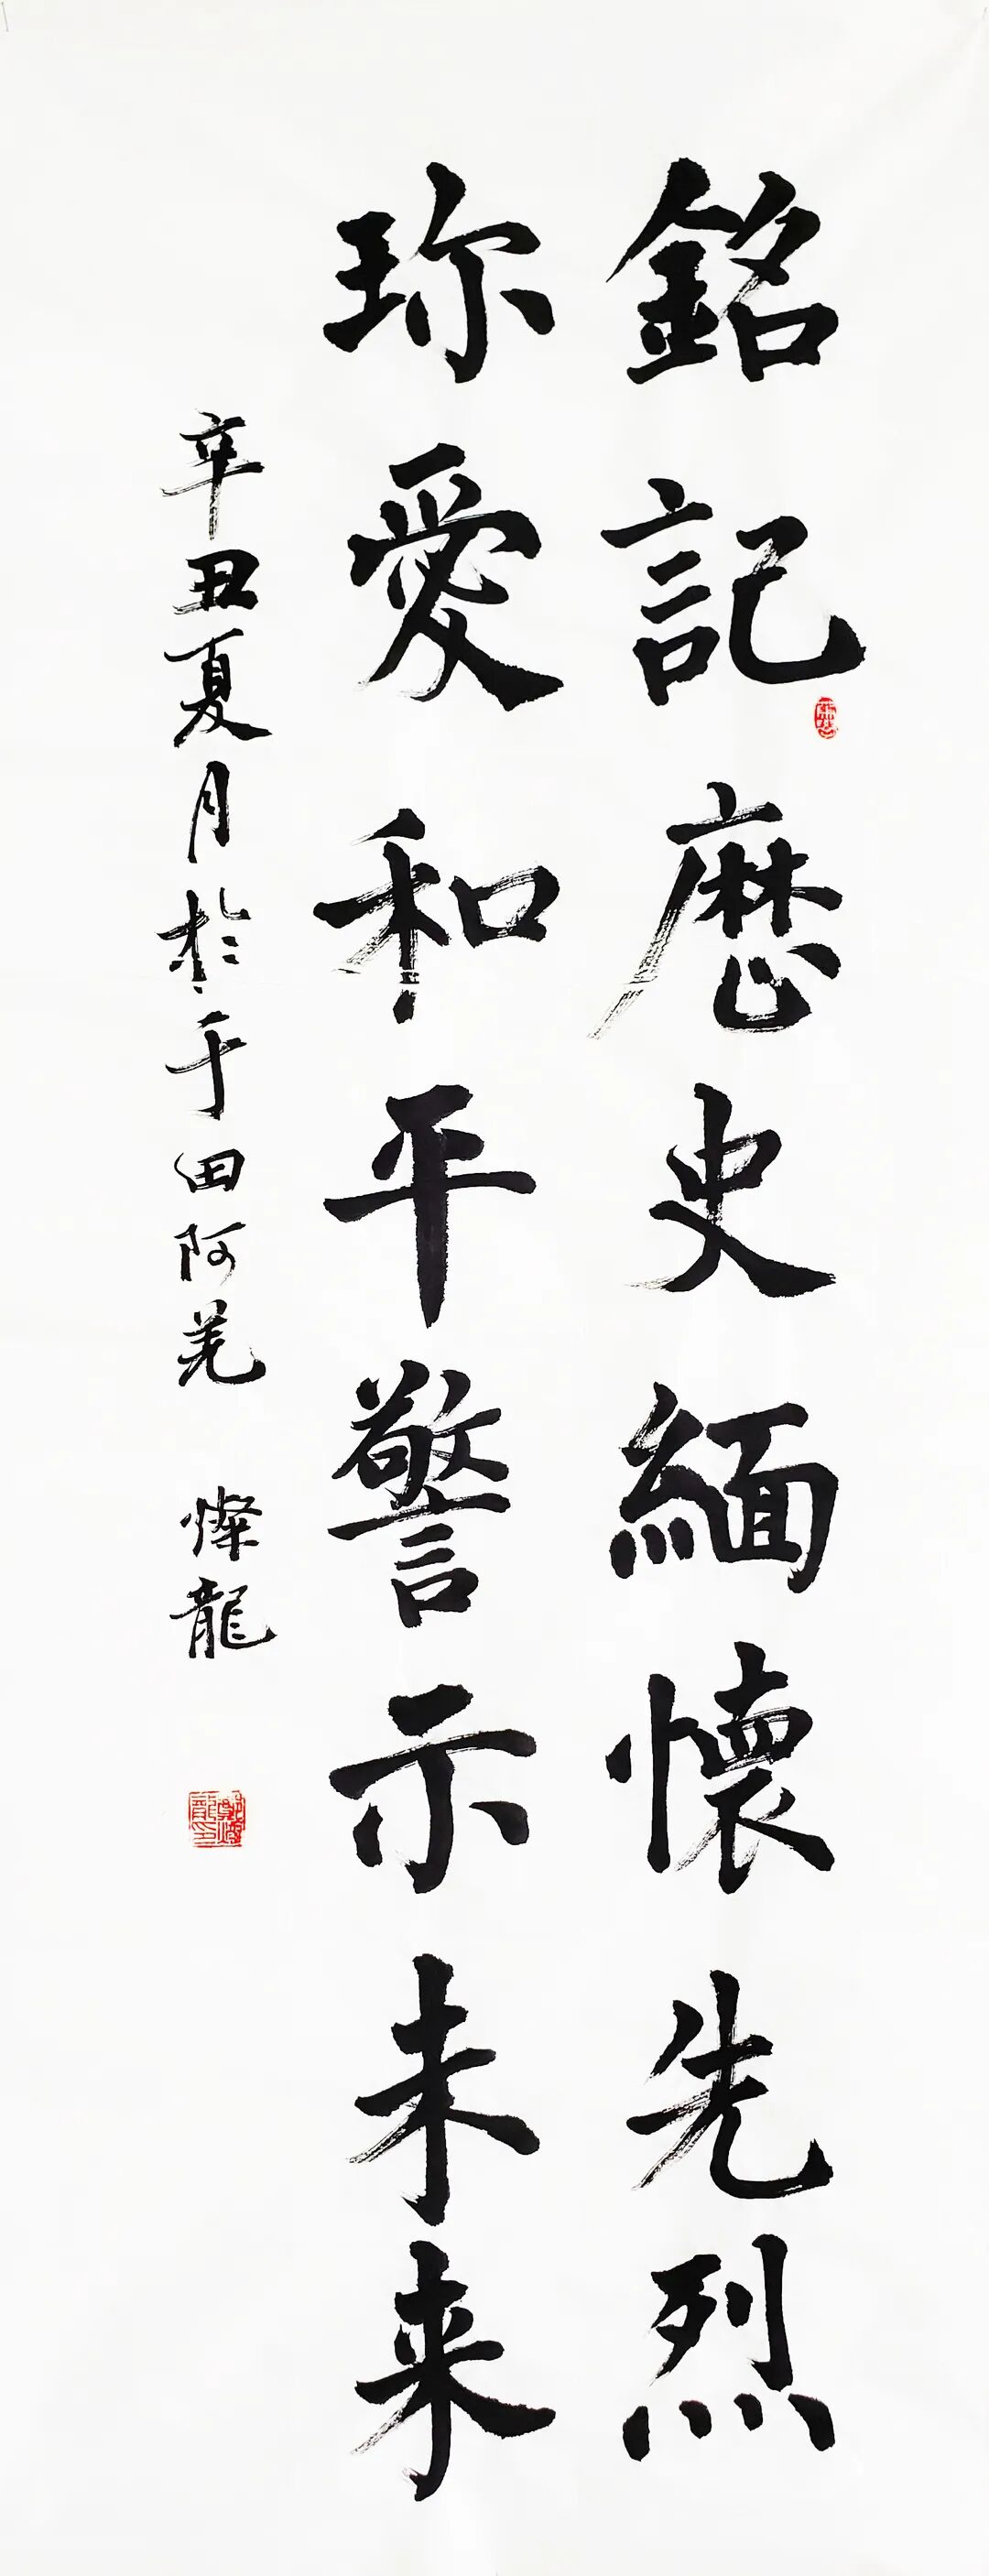 銘記歷史緬懷先烈
珎愛和平警示未来
辛丑夏月於于田阿羌 燦龍